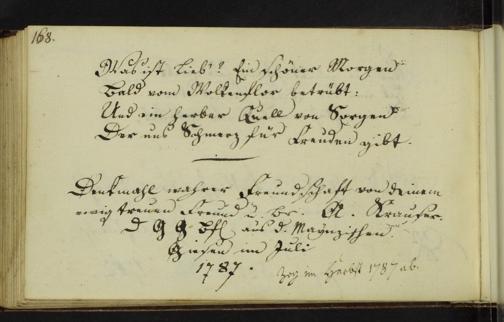 168.
Was ist Lieb'? Ein schöner Morgen
Bald vom Wolkenflor betrübt:
Und ein herber Quell von Sorgen
Der uns Schmerz für Freuden gibt.
Denkmahl wahrer Freundschaft von deinem
ewig treuen Freund u. Br. A. Krauser.
d G G Bfl aus d. Maynzischen
Giesen im Juli
1787.
Zog im Herbst 1787 ab.